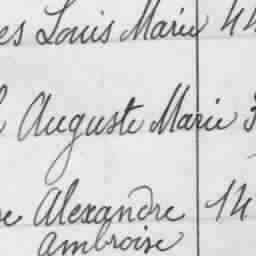 es Louis Marie 44
Auguste Marie
e Alexandre 14
ambroise